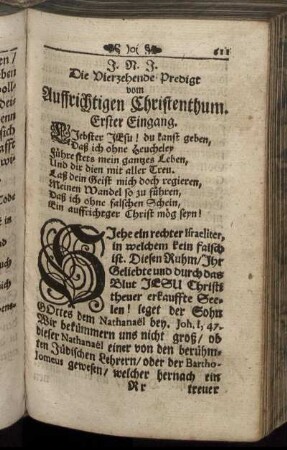 )o( 611
J. N. J.
Die Vierzehende Predigt
vom
Auffrichtigen Christenthum.
Erster Eingang.
LIebster JEsu! du kanst geben,
Daß ich ohne Heucheley
Führe stets mein gantzes Leben,
Und dir dien mit aller Treu.
Laß dein Geist mich doch regieren,
Meinen Wandel so zu führen,
Daß ich ohne falschen Schein,
Ein auffrichtger Christ mög seyn!
SIehe ein rechter Israeliter,
in welchem kein falsch
ist. Diesen Ruhm/ Ihr
Geliebte und durch das
Blut JESU Christi
theuer erkauffte See-
len! leget der Sohn
GOttes dem Nathanaël bey. Joh. I, 47.
Wir bekümmern uns nicht groß/ ob
dieser Nathanaël einer von den berühm-
ten Jüdischen Lehrern/ oder der Bartho-
lomeus gewesen/ welcher hernach ein
Rr treuer